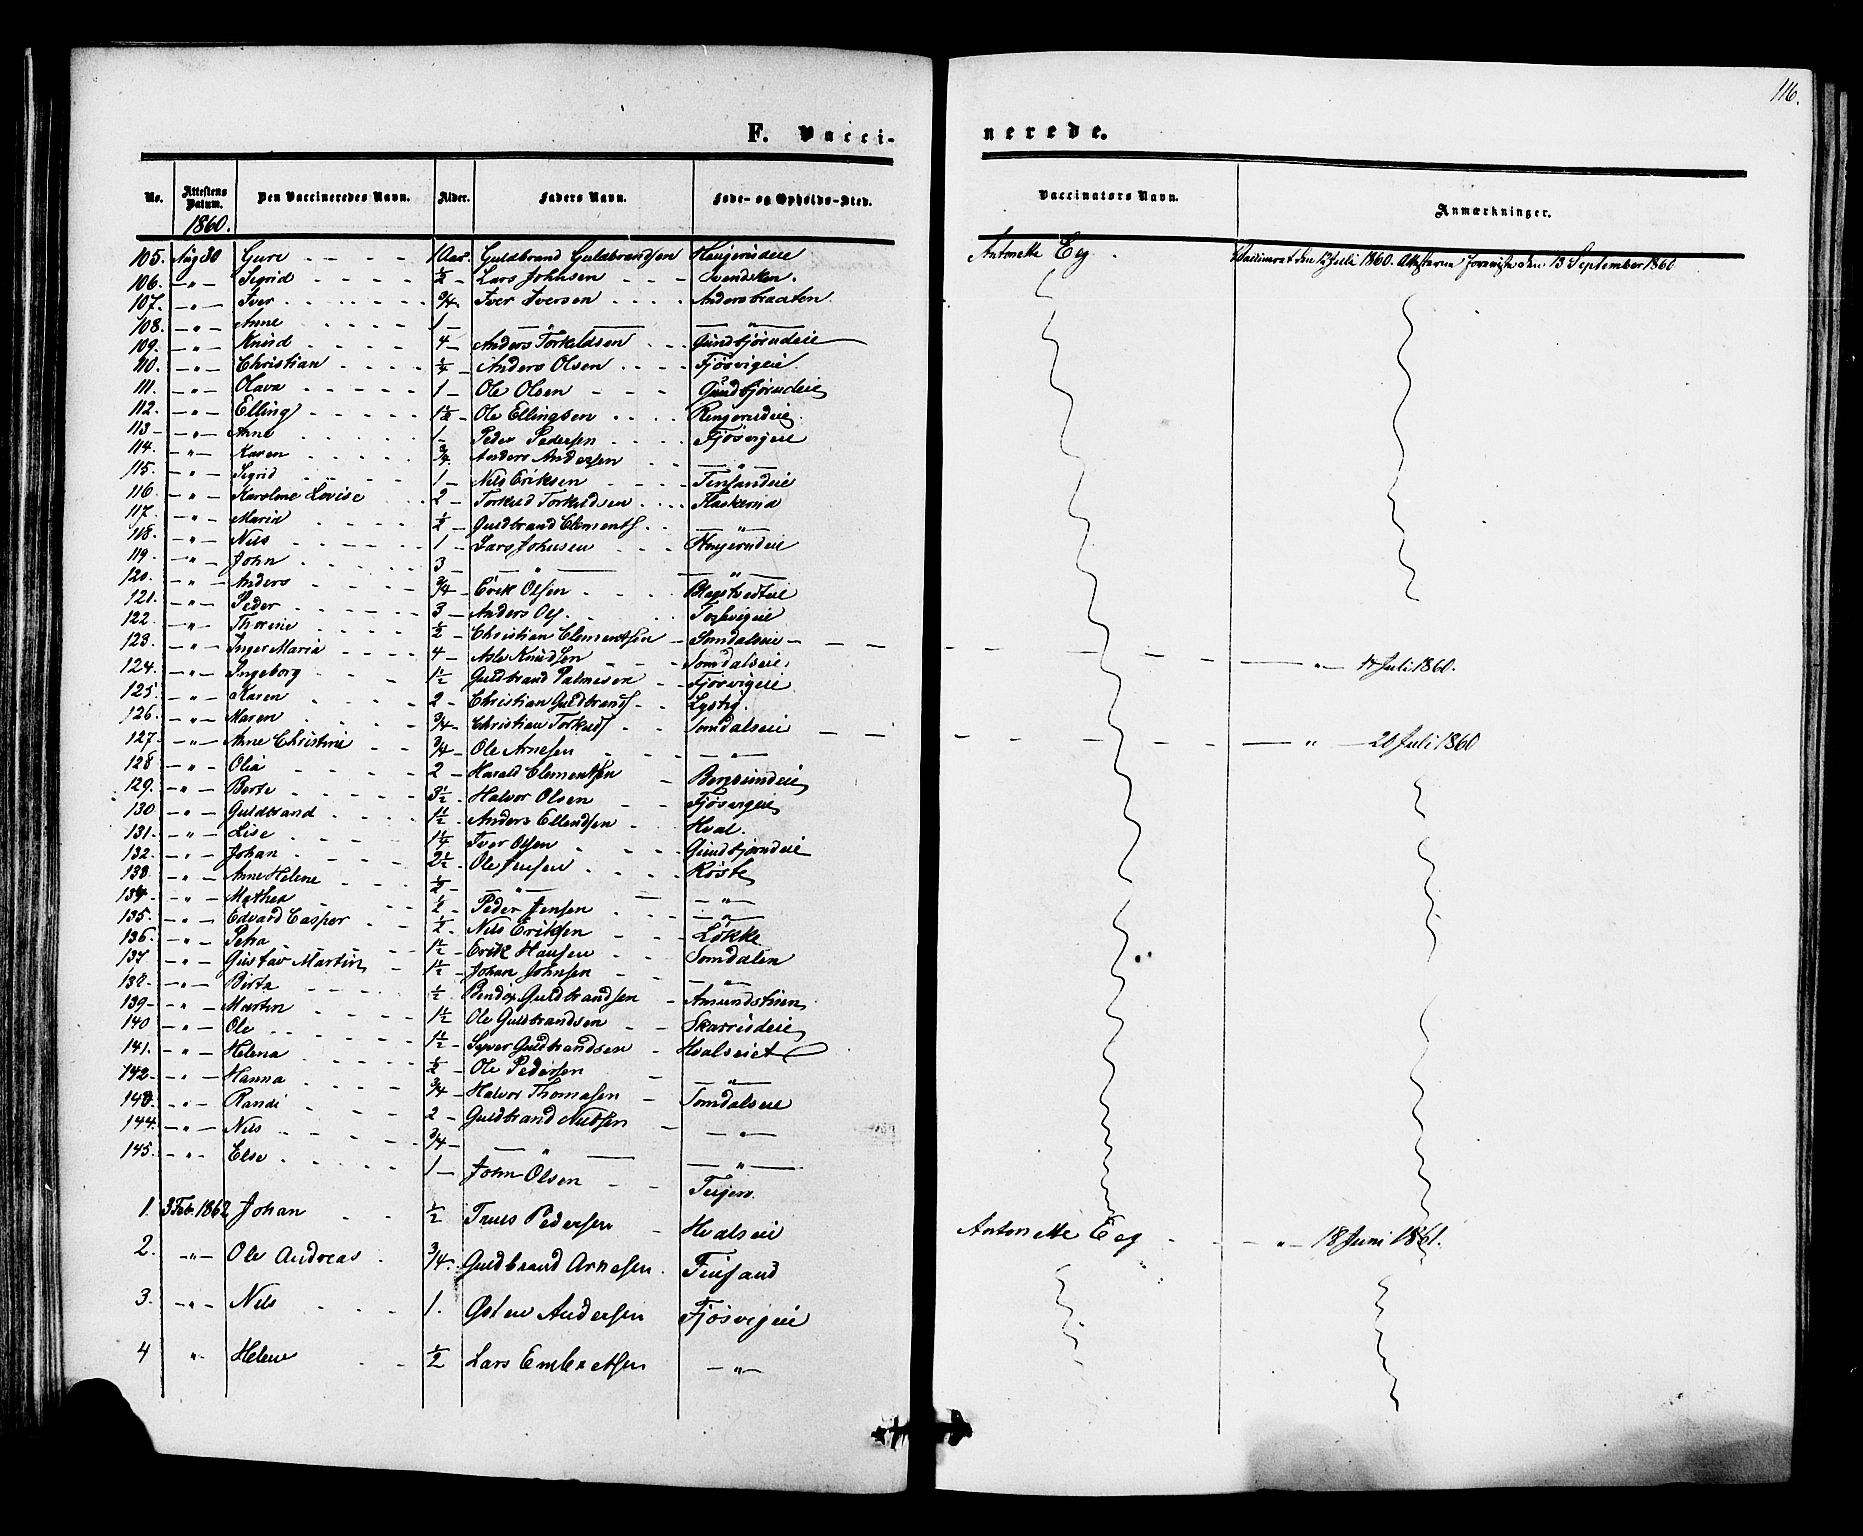 116.
F. Vacci-nerede.
No. Attestens Datum. Den Vaccineredes Navn. Alder. Faders Navn. Føde- og Opholds-Sted. Vaccinators Navn. Anmærkninger.
1860.
105. Aug 30 Gure 1 Aar Guldbrand Guldbrandsen Haugerudeie Antonette Eeg Vaccineret den 17 Juli 1860. Attesterne den 13 September 1860
106. -"- Sigrid ½ - Lars Johnsen Svendsken.
107. -"- Iver ¾ Iver Iversen Andersbraaten
108. -"- Anne 1 - -"- -"-
109. -"- Knud 4 - Anders Torkildsen Gundbjørudeie
110. -"- Christian Anders Olsen Fjøsvigeie
111. -"- Olava 1 - Ole Olsen Gundbjørudeie
112. -"- Elling 1½ - Ole Ellingsen Ringerudeie
113 -"- Anne 1 - Peder Pedersen Fjøsvigeie
114. -"- Karen ¾ Anders Andersen -"-
115. -"- Sigrid 1 - Nils Eriksen Finsandeie
116 -"- Karoline Lovise 2 - Torkild Torkildsen Flaskerud
117. -"- Maria ½ - Guldbrand Clements. -"-
118. -"- Nils 1 - Lars Johnsen Haugerudeie
119. -"- John 3 - -"- -"-
120. -"- Anders ¾ - Erik Olsen
121. -"- Peder 3 - Anders Ols.
122. -"- Thorine ½ - Christian Clementsen Somdalseie
123. -"- Inger Maria 4 - Asle Knudsen Somdalseie -"- 17 Juli 1860.
124. -"- Ingeborg 1½ Guldbrand Palmesen Fjøsvigeie
125. -"- Karen 2 - Christian Guldbrands. Lystig.
126. -"- Maren ¾ - Christian Torkilds. Somdalseie
127. -"- Anne Christine ¾ - Ole Arnesen -"- -"- 20 Juli 1860
128 -"- Olia 2 - Harald Clementsen
129. -"- Berte 3½ - Halvor Olsen Fjøsvigeie
130 -"- Guldbrand 1½ - Anders Ellendsen Hval.
131. -"- Lise 1¼ Iver Olsen Gundbjørudeie
132. -"- Johan 2½ - Ole Jensen Røste
133. -"- Anne Helene ½ - -"- -"-
134. -"- Mathea ½ - Peder Jensen -"-
135. -"- Edvard Casper ½ - Nils Eriksen Løkke
136. -"- Petra 1½ - Erik Hansen Somdalen
137 -"- Gustav Martin 1½ - Johan Johnsen -"-
138. -"- Berte ½ Bendix Guldbrandsen
139. -"- Martin 1½ Ole Guldbrandsen Skarrudeie
140 -"- Ole 1½ - Syver Guldbrandsen Hvalseiet
141. -"- Helena ½ - Ole Pedersen -"-
142. -"- Hanna ¾ - Halvor Thomasen Somdalseie
143. -"- Randi 2 - Guldbrand Nielsen -"-
144. -"- Nils ¾ - -"- -"-
145. -"- Else 1 - John Olsen
1. 3 Feb. 1862 Johan ½ Truls Pedersen Hvalseie Antonette Eeg -"- 18 Juni 1861.
2. -"- Ole Andreas ¾ Guldbrand Arnesen Finsand
3. -"- Nils 1. Østen Andersen Fjøsvigeie
4 -"- Helene ½ Lars Embretsen -"-